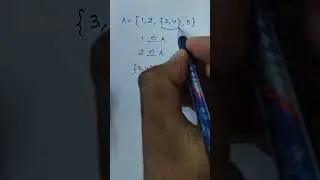 A = {1, 2, {3,4}, 5}
1 ∈ A
2 ∈ A
{3,4}